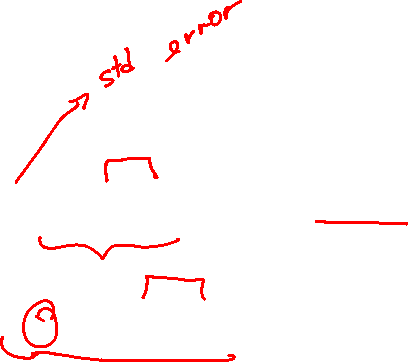 std error